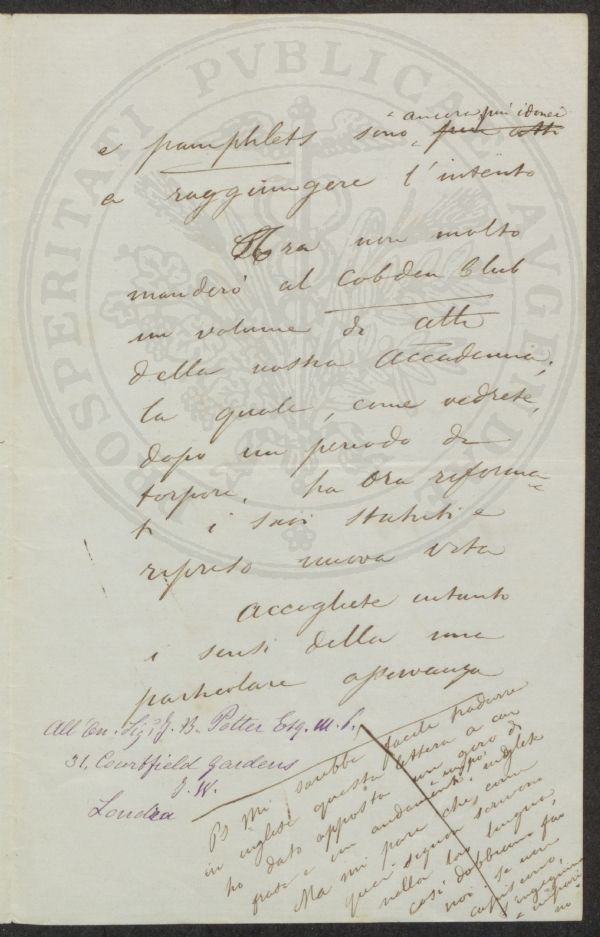 PROSPERITATI PVBLICAE AVGENDAE
ancora più idonei
e pamphlets sono più atti
a raggiungere l'intento
Ora non molto
manderò al Cobden Club
un volume di atti
della nostra Accademia,
la quale, come vedrete,
dopo un periodo di
torpore, ha ora riforma-
ti i suoi statuti e
ripreso nuova vita
Accogliete intanto
i sensi della mia
particolare osservanza
All'On. Sigr J. B. Potter Esq. M. P.
31. Courtfield Gardens
S. W.
Londra
PS Mi sarebbe facile tradurre
in inglese questa lettera a cui
ho dato apposta un giro di
frase e un andamento inglese
Ma mi pare che, come
quei signori scrivono
nella loro lingua,
così dobbiamo far
noi. Se non
capiscono,
s'ingegnino